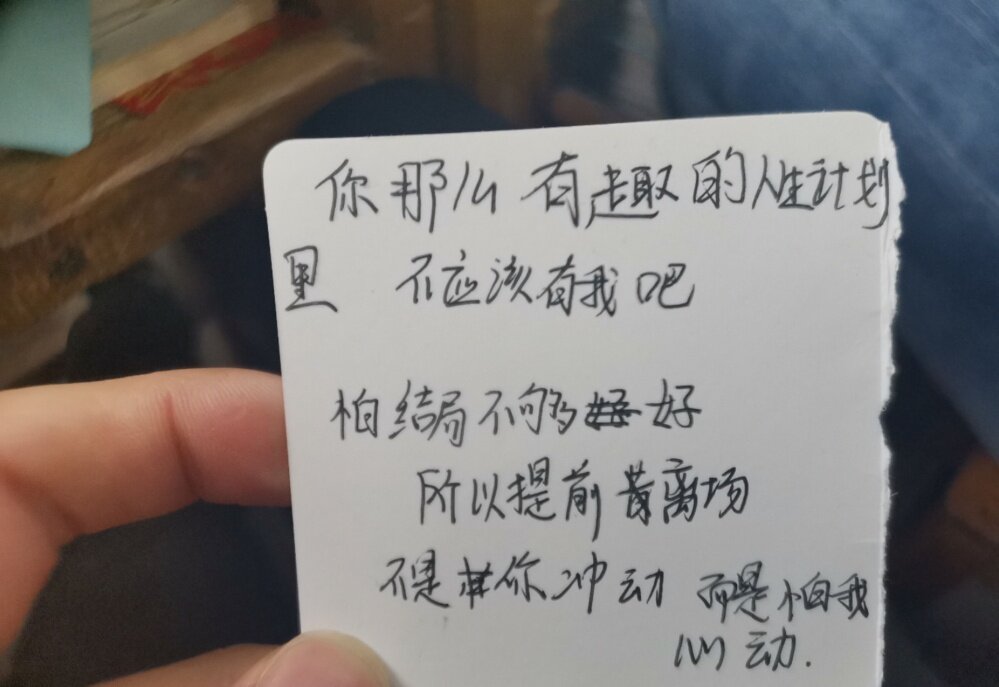 你那么有趣的人生计划
里 不应该有我吧
怕结局不够好
所以提前离场
不是你冲动 而是怕我
心动.